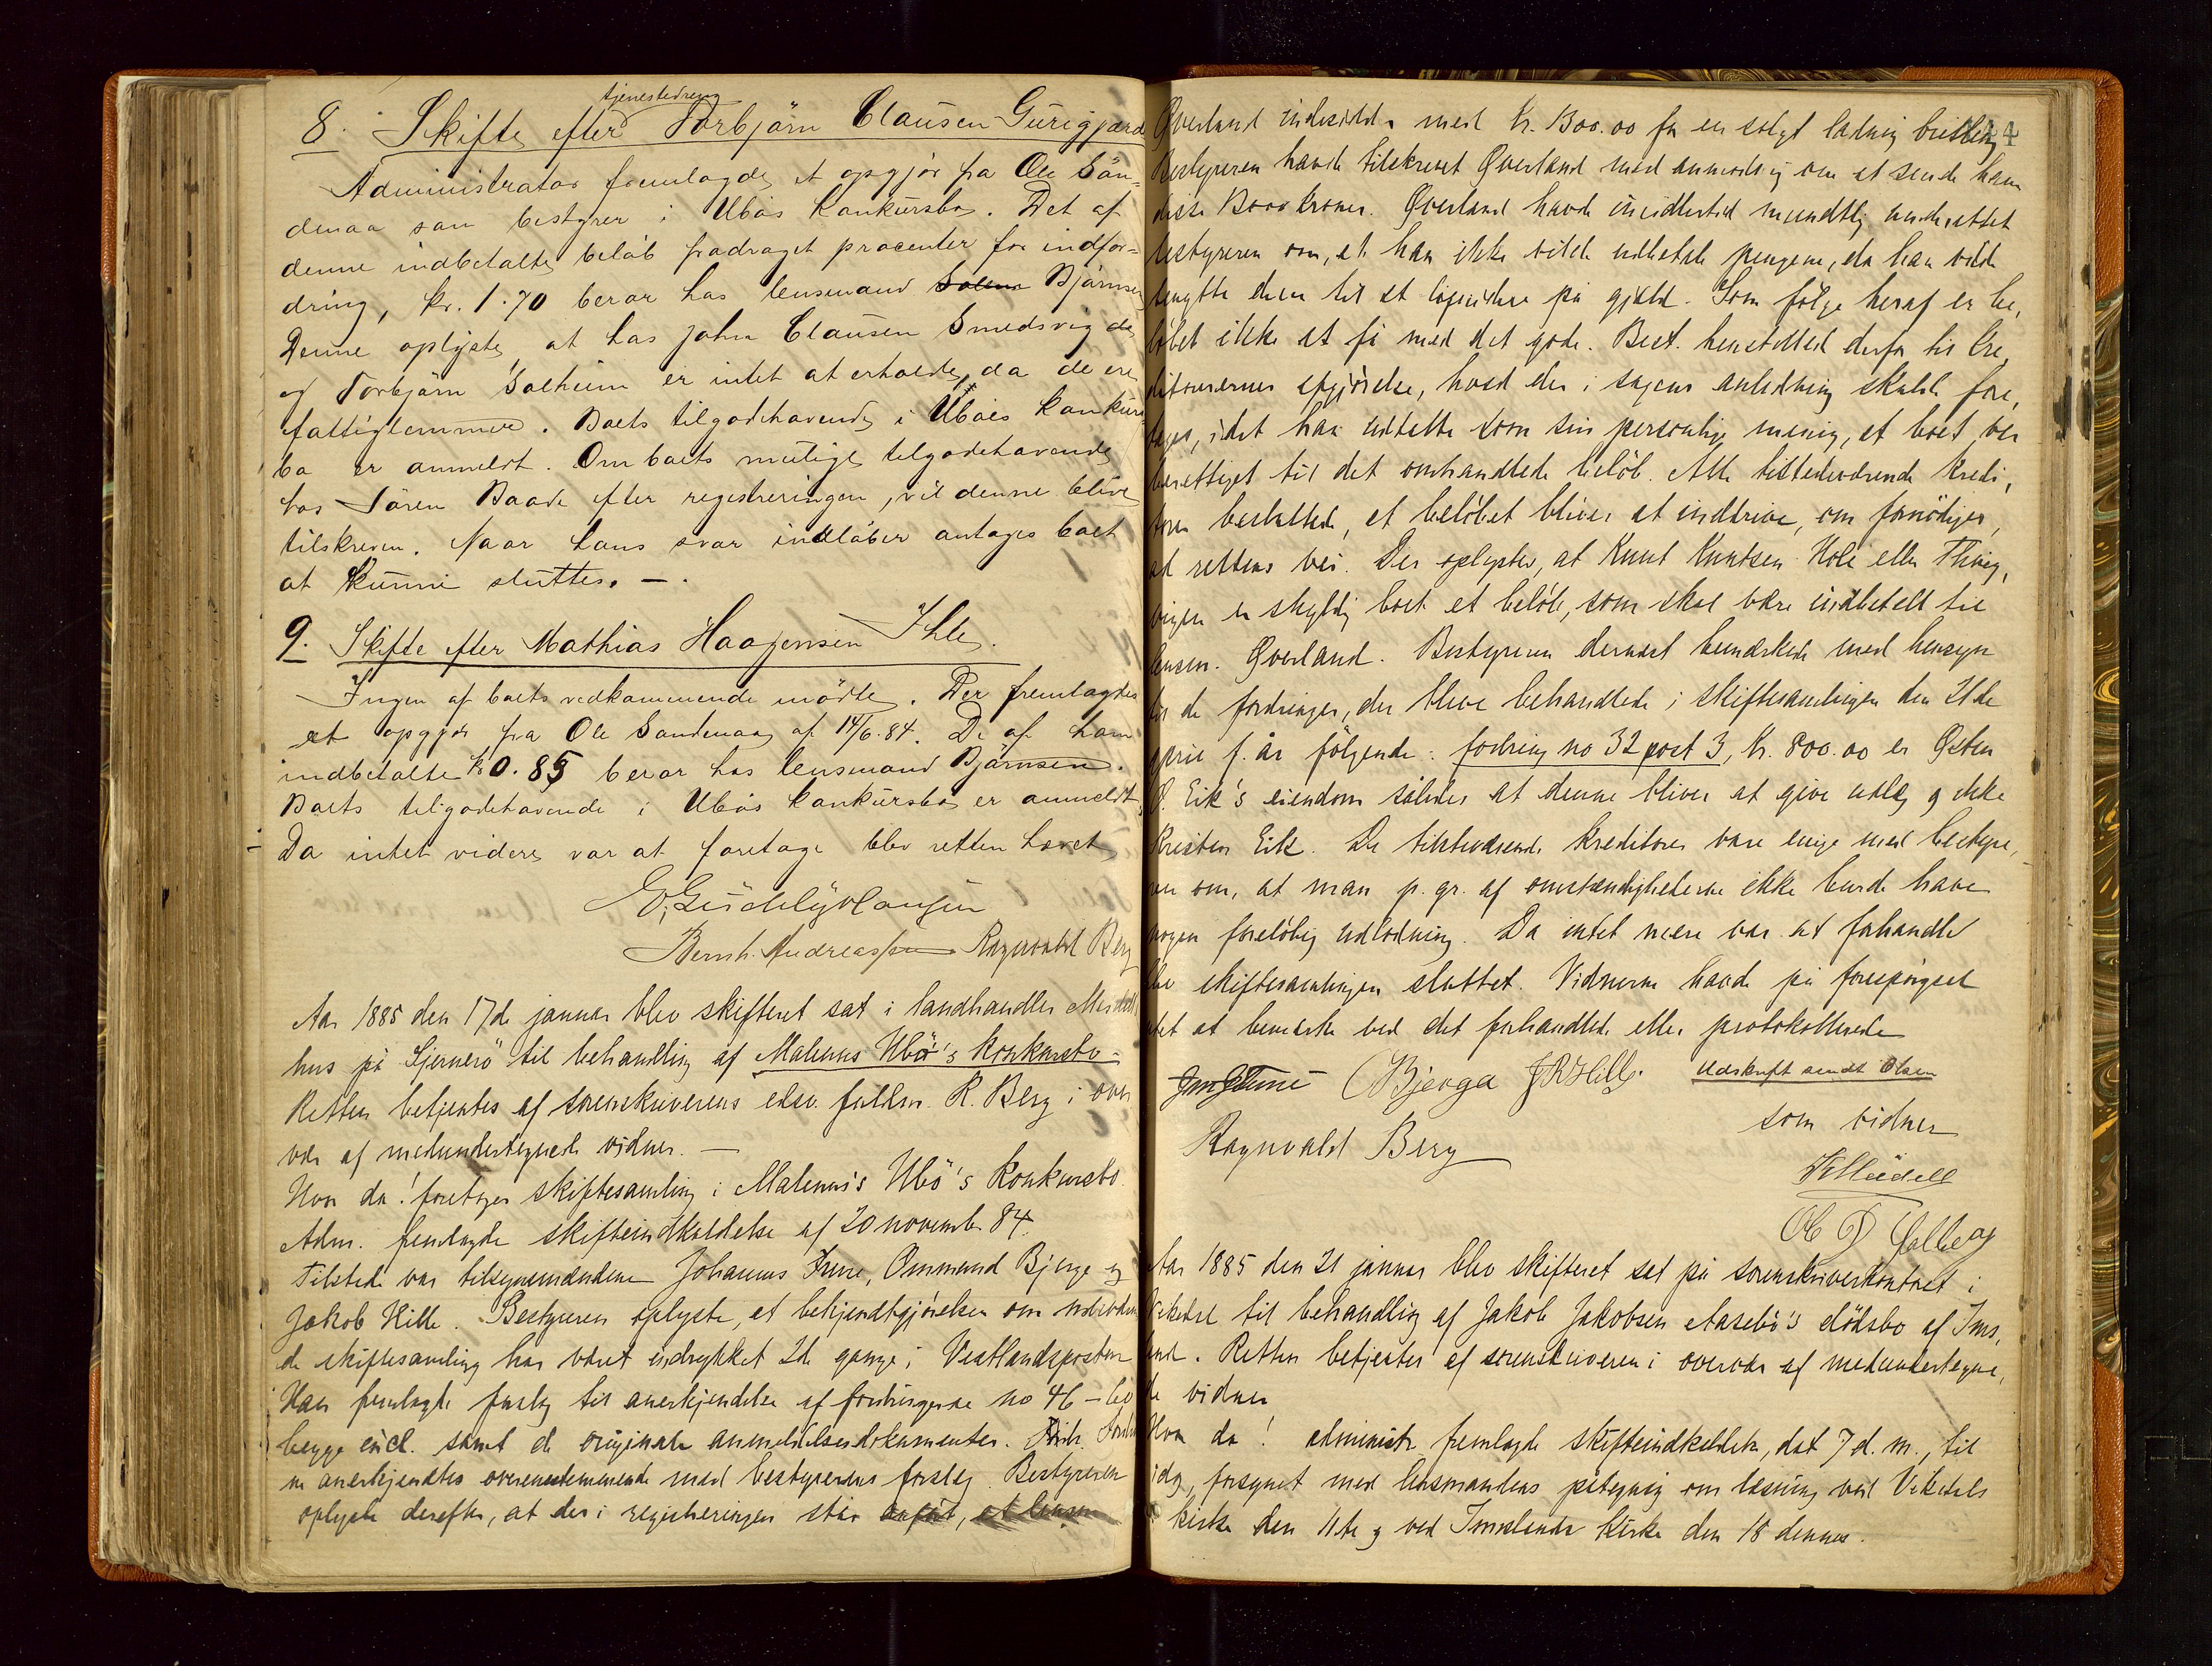 tjenestedreng
8. Skifte efter Torbjörn Clausen Gurigjærd
Administrator fremlagde et opgjör fra Ole Sön-
denaa som bestyrer i Ubös konkursbo. Det af
denne indbetalte belöb fradraget procenter for indfor-
dring, kr. 1.70 beror hos lensmand Bjärnsen
Denne oplyste at hos John Clausen Smedsvig
og Torbjörn Solheim er intet at erholde, da de ere
fattiglemmer. Boets tilgodehavende i Ubös konkurs
bo er anmeldt. Om boets mulige tilgodehavende
hos Sören Baade efter registreringen, vil denne blive
tilskreven. Naar hans svar indlöber antages boet
at kunne sluttes. -
9. Skifte efter Mathias Haagensen Ihle.
Ingen af boets vedkommende mödte. Der fremlagdes
et opgjör fra Ole Sandenaa af 14/6.84. De af ham
indbetalte kr 0.85 beror hos lensmand Bjärnsen.
Boets tilgodehavende i Ubös konkursbo er anmeldt
Da intet videre var at foretage blev retten hævet
Bernh. Andreassen Ragnvald Berg
Aar 1885 den 17de januar blev skifteret sat i landhandler
hus på Sjernerö til behandling af Malenus Ubö's konkursbo -
Retten betjentes af sorenskriverens edsv. fuldm. R. Berg i over
vær af medundertegnede vidner. -
Hvor da! foretoges skiftesamling i Malenus's Ubö's konkursbo.
Adm. fremlagde skifteindkaldelse af 20 novemb. 84.
Tilstede var tilsynsmændene Johannes Tune, Ommund Bjerge og
Jakob Hille. Bestyreren oplyste, at bekjendtgjörelsen om
de skiftesamling har været indrykket 2de gange i Vestlandsposten
Han fremlagde forslag til anerkjendelse af fordringerne no 46 - 60
begge incl. samt de originale anmeldelsesdokumenter.
ne anerkjendtes overensstemmende med bestyrerens forslag. Bestyreren
oplyste derefter, at der i registreringen står anfört, at lensm
Qverland indesidder med kr. 1300.00 for en solgt ladning brisling
Bestyreren havde tilskrevet Qverland med anmodning om at sende ham
disse 1300 kroner. Qverland havde imidlertid mundtlig underrettet
bestyreren om, at han ikke vilde udbetale pengene, da han vilde
benytte dem til at liquidere på gjæld. Som fölge heraf er be,
löbet ikke at få med det gode. Best. henstilled derfor til kre,
ditorernes afgjörelse, hvad der i sagens anledning skulde fore,
tages, idet han udtalte som sin personlige mening, at boet var
berettiget til det omhandlede belöb. Alle tilstedeværende kredi,
torer besluttede, at belöbet bliver at inddrive, om fornödiges,
ad rettens vei. Der oplystes, at Knut Knutsen Hole eller Thing,
vigen er skyldig boet et belöb, som skal være indbetalt til
lensm. Qverland. Bestyreren dernæst bemærkede med hensyn
til de fordringer, der bleve behandlede i skiftesamlingen den 21de
f. år fölgende: fordring no 32 post 3, kr. 800.00 er Østen
O. Eik's eiendom således at denne bliver at give udlæg og ikke
Kristen Eik. De tilstedeværende kreditorer vare enige med bestyre,
ren om, at man p. gr. af omstændighederne ikke burde have
nogen foreløbig udlodning. Da intet mere var at forhandle
blev skiftesamlingen sluttet. Vidnerne havde på forespörgsel
intet at bemærke ved det forhandlede eller protokollerede
Bjerga J R Hille. Udskrift sendt Olsen
Ragnvald Berg
som vidner
Aar 1885 den 21 januar blev skifteret sat på sorenskriverkontoret i
Vikedal til behandling af Jakob Jakobsen Aasebö's dödsbo af Ims,
land. Retten betjentes af sorenskriveren i overvær af medundertegne,
de vidner
Hvor da! administr. fremlagde skifteindkaldelse, dat 7 d. m., til
idag, forsynet med lensmandens påtegning om læsning ved Vikedals
kirke den 11te og ved Imslands kirke den 18 dennes.